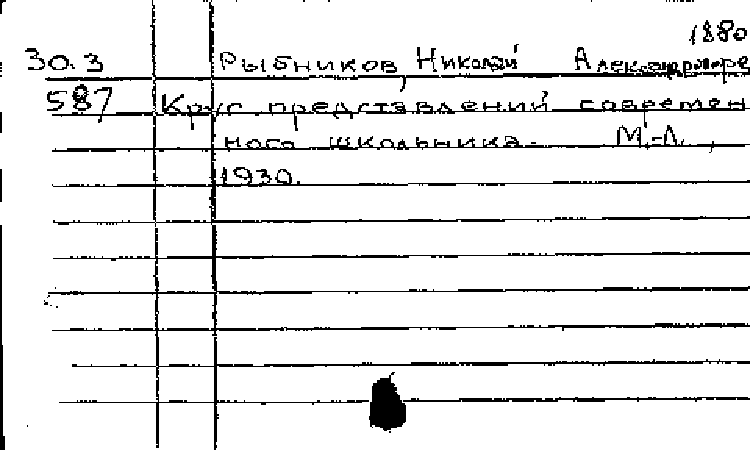 1880
30.3 Рыбников, Николай Александрович
587 Круг представлений современ
ного школьника. М.-Л.,
1930.